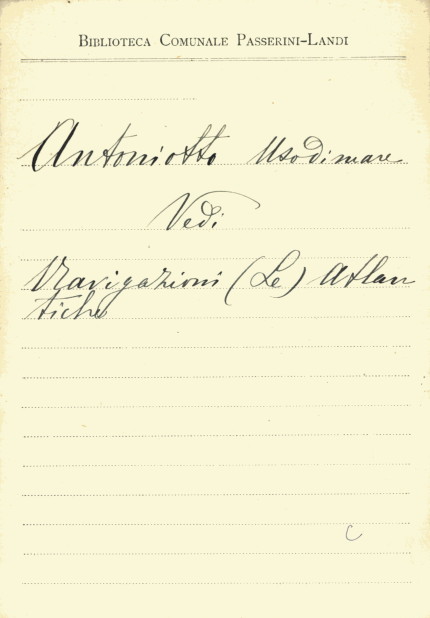 Biblioteca Comunale Passerini-Landi
Antoniotto Usodimare
Vedi
Navigazioni (Le) Atlan
tiche
C